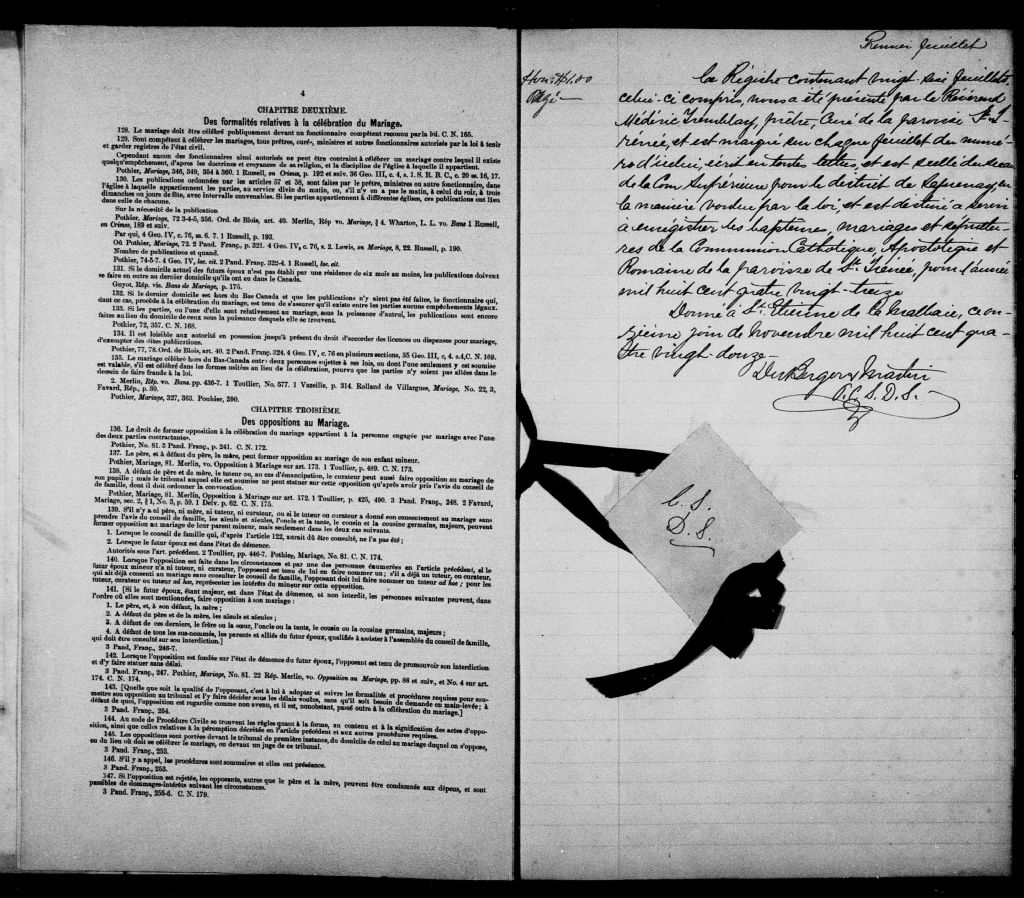 4
CHAPITRE DEUXIÈME.
Des formalités relatives à la célébration du Mariage.
128. Le mariage doit être célébré publiquement devant un fonctionnaire compétent reconnu par la loi. C. N. 165.
129. Sont compétent à célébrer les mariages, tous prêtres, curé, ministres et autres fonctionnaires autorisés par la loi à tenir
et garder registres de l'état civil.
Cependant aucun des fonctionnaires ainsi autorisés ne peut être contraint à célébrer un mariage contre lequel il existe
quelqu'empêchement, d'après les doctrines et croyances de sa religion, et la discipline de l'église à laquelle il appartient.
Pothier, Mariage, 346, 349, 354 à 360. 1 Russell, on Crimes, p. 192 et suiv. 36 Geo. III, c. 4, s. 1. S. R. B. C., c. 20 ss. 16, 17.
130. Les publications ordonnées par les articles 57 et 58, sont faites par le prêtre, ministres ou autre fonctionnaire, dans
l'église à laquelle appartiennent les parties, au service divin du matin, ou, s'il n'y en a pas le matin, à celui du soir, à trois
dimanches ou jours de fête, avec intervalle convenables. Si les parties appartiennent à différentes églises, ces publications ont lieu
dans celle de chacune.
Sur la nécessité de la publication
Pothier, Mariage, 72 3-4-5, 356. Ord. de Blois, art. 40. Merlin, Rép vo. Mariage, § 4. Wharton, L. L. vo. Bans 1 Russell,
on Crimes, 189 et suiv.
Par qui, 4 Geo. IV, c. 76, ss. 6. 7. 1 Russell, p. 193.
Où Pothier, Mariage, 72. 2 Pand. Franç., p. 321. 4 Geo. IV, c. 76, s. 2. Lewis, on Mariage, 8, 22. Russell, p. 190.
Nombre de publications et quand.
Pothier, 74-5-7. 4 Geo. IV, loc. cit. 2 Pand Franç. 322-4. 1 Russell, loc. cit.
131. Si le domicile actuel des futurs époux n'est pas établi par une résidence de six mois au moins, les publications doivent
se faire en outre au dernier domicile qu'ils ont eu dans le Canada.
Guyot, Rép. vis. Bans de Mariage, p. 175.
132. Si le dernier domicile est hors du Bas Canada et que les publications n'y aient pas été faites, le fonctionnaire qui,
dant ce cas, procède à la célébration du mariage, est tenu de s'assurer qu'il existe entre les parties aucuns empêchements légaux.
133. Si les parties, ou l'une d'elles sont relativement au mariage, sous la puissance d'autrui, les publications sont encore
faites au lieu du domicile de ceux sous la puissance desquels elle se trouvent.
Pothier, 72, 357. C. N. 168.
134. Il est loisible aux autorité en possession jusqu'à présent du droit d'accorder des licences ou dispenses pour mariage,
d'exempter des dites publications.
Pothier, 77, 78. Ord. de Blois, art. 40. 2 Pand Franç. 324. 4 Geo. IV, c. 76 en plusieurs sections, 35 Geo. III, c, 4. s.4, C. N. 169.
135. Le mariage célébré hors du Bas-Canada entre deux personnes sujettes à ses lois, ou dont l'une seulement y est soumise
est valable, s'il est célébré dans les formes usitées au lieu de la célébration, pourvu que les parties n'y soient pas allées dans le
dessein de faire fraude à la loi.
2. Merlin, Rép. vo. Bans, pp. 436-7. 1 Toullier, No. 577. 1 Vazeille, p. 314. Rolland de Villargues, Mariage, No. 22, 3,
Favard, Rép., p. 30.
Pothier, Mariage, 327, 363. Pouhier, 390.
CHAPITRE TROISIÈME.
Des oppositions au Mariage.
136. Le droit de former opposition à la célébration du mariage appartient à la personne engagée par mariage avec l'une
des deux parties contractantes.
Pothier, No. 81. 3 Pand. Franç., p. 241. C. N. 172.
137. Le père, et à défaut du père, la mère, peut former opposition au mariage de son enfant mineur.
Pothier, Mariage, 81. Merlin, vo. Opposition à Mariage sur art. 173. 1 Toullier, p. 489. C. N. 173.
138. A défaut de père et de mère, le tuteur ou, au cas d'émancipation, le curateur peut aussi faire opposition au mariage de
son pupille; mais le tribunal auquel elle est soumise ne peut statuer sur cette opposition qu'après avoir pris l'avis du conseil de
famille, dont il doit ordonner la convocation.
Pothier, Mariage, 81. Merlin, Opposition à Mariage sur art. 172. 1 Toullier, p. 425, 490. 3 Pand. Franç., 248. 2 Favard,
Mariage, sec. 2, § 1, No. 3, p. 59. 1 Delv. p. 62. C. N. 175.
139. S'il n'y a ni père, ni mère, ni tuteur, ni curateur, ou si le tuteur ou curateur a donné son consentement au mariage sans
prendre l'avis du conseil de famille, les aïeuls et aïeules, l'oncle et la tante, le cousin et la cousine germains, majeurs, peuvent
former opposition au mariage de leur parent mineur, mais seulement dans les deux cas suivants.
1. Lorsque le conseil de famille qui, d'après l'article 122, aurait dû être consulté, ne l'a pas été;
2. Lorsque le futur époux est dans l'état de démence.
Autorités sous l'art. précédent. 2 Toullier, pp. 446-7. Pothier, Mariage, No. 81. C. N. 174.
140. Lorsque l'opposition est faite dans les circonstances et par une des personnes énumérées en l'article précédent, si le
futur époux mineur n'a ni tuteur, ni curateur, l'opposant est tenu de lui en faire nommer un; s'il a déjà un tuteur, ou curateur,
qui ait déjà consenti au mariage sans consulter le conseil de famille, l'opposant doit lui faire nommer un tuteur ad hoc; pour les
tuteur, curateur ou tuteur ad hoc, représenter les intérêts du mineur sur cette opposition.
141. [Si le futur époux, étant majeur, est dans l'état de démence, et non interdit, les personnes suivantes peuvent, dans
l'ordre où elles sont mentionnées, faire opposition à son mariage:
1. Le père, et, à son défaut, la mère;
2. A défaut du père et de la mère, les aïeuls et aïeules;
3. A défaut de ces derniers, le frère ou la sœur, l'oncle ou la tante, le cousin ou la cousine germains, majeurs;
4. A défaut de tous les sus-nommés, les parents et alliés du futur époux, qualifiés à assister à l'assemblée du conseil de famille,
qui doit être consulté sur son interdiction.]
3 Pand, Franç., 246-7.
142. Lorsque l'opposition est fondée sur l'état de démence du futur époux, l'opposant est tenu de promouvoir son interdiction
et d'y faire statuer sans délai.
3 Pand. Franç., 247. Pothier, Mariage, No. 81. 22 Rép. Merlin, vo. Opposition au Mariage, pp. 88 et suiv., et No. 4 sur art.
174. C. N. 174.
143. [Quelle que soit la qualité de l'opposant, c'est à lui à adopter et suivre les formalités et procédures requises pour sou-
mettre son opposition au tribunal et l'y faire décider sous les délais voulus, sans qu'il soit besoin de demande en main-levée; à
défaut de quoi, l'opposition est regardée comme non avenu, et il est, nonobstant, passé outre à la célébration du mariage.]
3 Pand. Franç., 254.
144. Au code de Procédure Civile se trouvent les règles quant à la forme, au contenu et à la signification des actes d'oppo-
sition, ainsi que celles relatives à la péremption décrétée en l'article précédent et aux autres procédures requises.
145. Les oppositions sont portées devant le tribunal de première instance, du domicile de celui au mariage duquel on s'oppose,
ou du lieu où doit se célébrer le mariage, ou devant un juge de ce tribunal.
3 Pand. Franç., 253.
146. S'il y a appel, les procédures sont sommaires et elles ont préséance.
3 Pand. Franç., 253.
147. Si l'opposition est rejetée, les opposants, autres que le père et la mère, peuvent être condamnés aux dépens, et sont
passibles de dommages-intérêts suivant les circonstances.
3 Pand. Franç., 255-6. C. N. 179.
Premier feuillet
Hon: $1.00
Payé —
Ce Régistre contenant vingt-six feuillets
celui-ci compris, nous a été présenté par le Révérend
Médéric Tremblay, prêtre, Curé de la paroisse St. I-
rénée, et est marqué sur chaque feuillet du numé-
ro d'icelui, écrit en toutes lettres, et est scellé du sceau
de la Cour Supérieure pour le district de Saguenay, en
la manière voulue par la loi, et est destiné à servir
à enrégistrer les baptêmes, mariages et sépultu-
res de la Communion Catholique, Apostolique et
Romaine de la paroisse de St. Irénée, pour l'année
mil huit cent quatre vingt-treize
Donné à St. Etienne de la Malbaie, ce on-
zième jour de Novembre mil huit cent qua-
tre vingt-douze —
DuBerger & Martin
P. C. S. D. S.
C. S.
D. S.